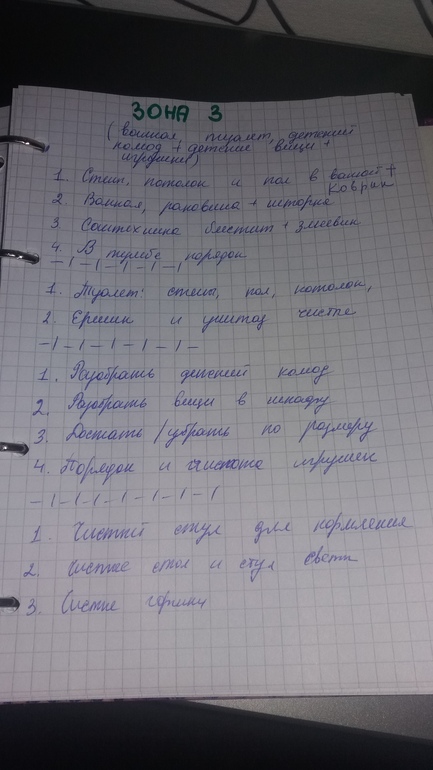 ЗОНА 3
(ванная, туалет, детский
комод + детские вещи +
игрушки)
1. Стены, потолок и пол в ванной +
коврик
2. Ванная, раковина + шторка
3. Сантехника блестит + змеевик
4. В тумбе порядок
1. Туалет: стены, пол, потолок,
2. Ершик и унитаз чистые
1. Разобрать детский комод
2. Разобрать вещи в шкафу
3. Достать / убрать по размеру
4. Порядок и чистота игрушек
1. Чистый стул для кормления
2. Чистые стол и стул Светы
3. Чистые горшки